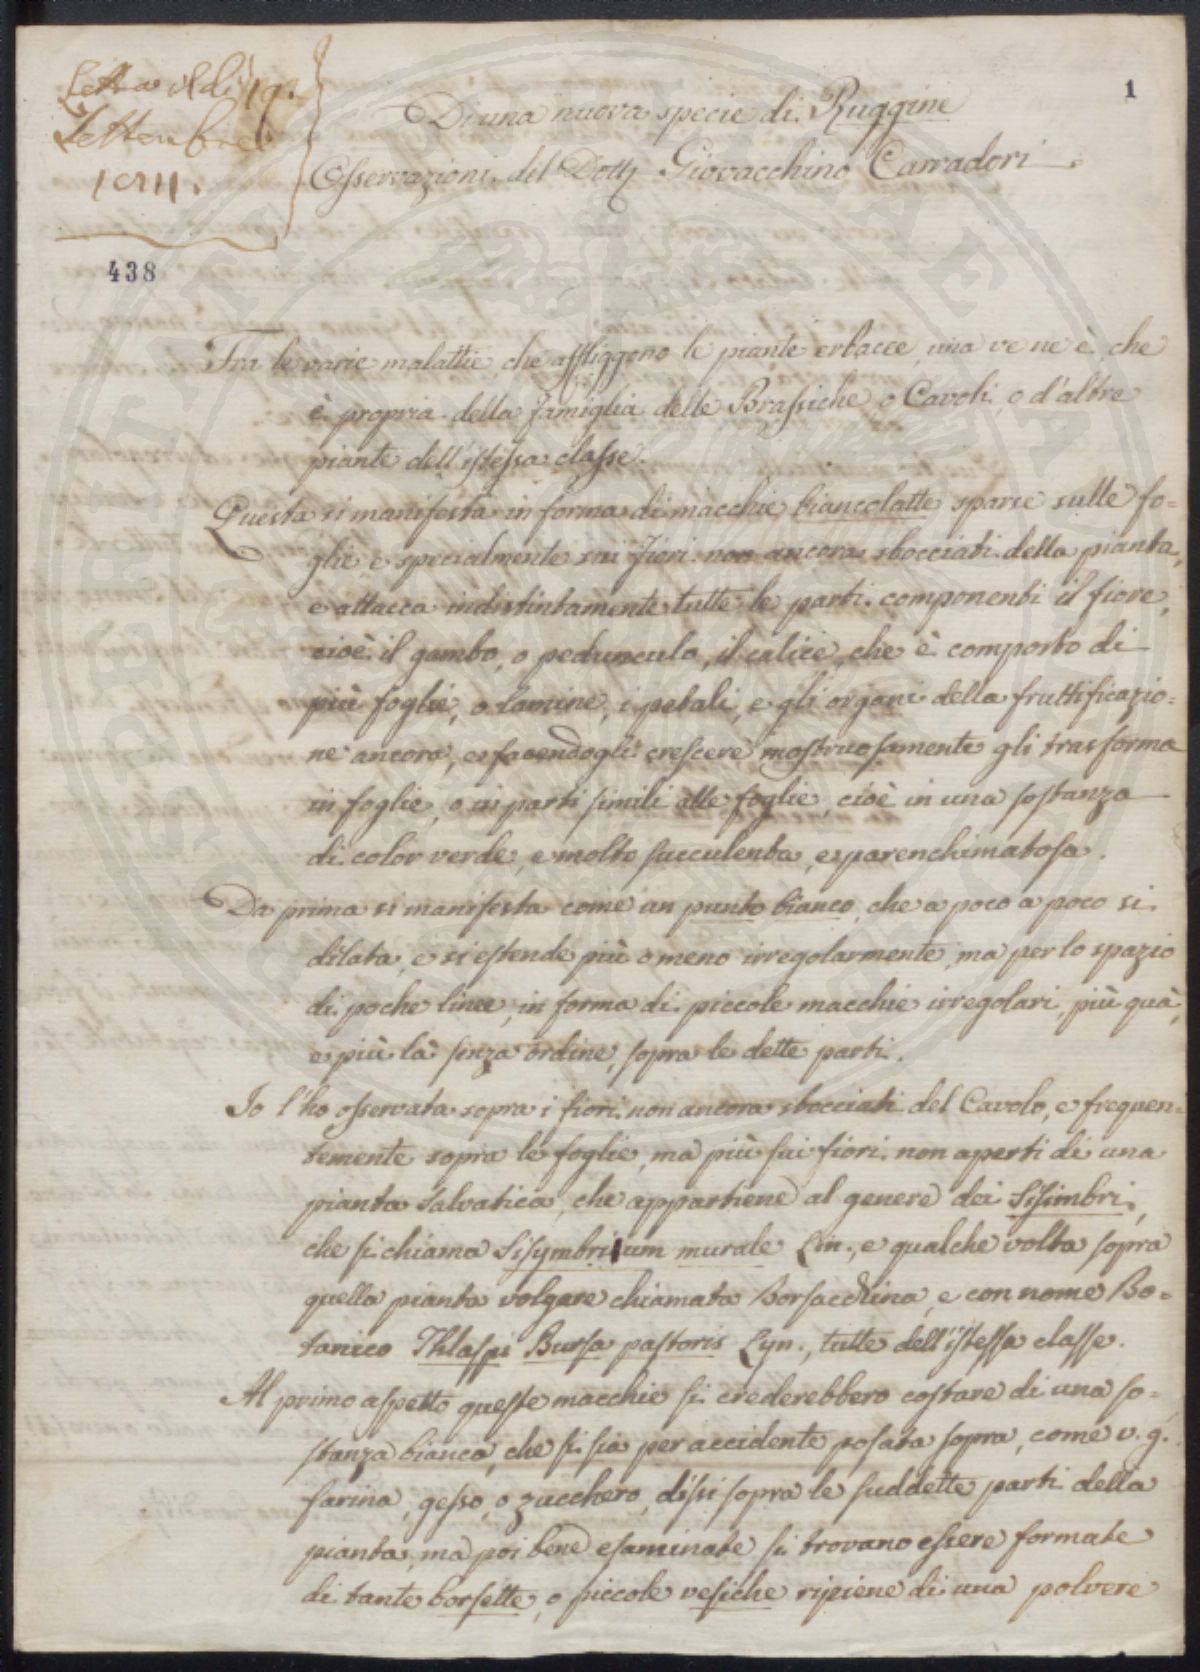 Letta il dì 19.
Settembre
1811.
1
438
Di una nuova specie di Ruggine
Osservazioni del Dott. Giovacchino Carradori.
Tra le varie malattie, che affliggono le piante erbacee, una ve ne è, che
è propria della famiglia delle Brassiche, o Cavoli, o d'altre
piante dell'istessa classe.
Questa si manifesta in forma di macchie biancolatte sparse sulle fo=
glie, e specialmente sui fiori non ancora sbocciati della pianta,
e attacca indistintamente tutte le parti componenti il fiore,
cioè il gambo, o peduncolo, il calice, che è composto di
più foglie, o lamine, i petali, e gli organi della fruttificazio=
ne ancora, e facendogli crescere mostruosamente gli trasforma
in foglie, o in parti simili alle foglie, cioè in una sostanza
di color verde, e molto succulenta, e parenchimatosa.
Da prima si manifesta come un punto bianco, che a poco a poco si
dilata, e si estende più o meno irregolarmente, ma per lo spazio
di poche linee, in forma di piccole macchie irregolari, più quà,
e più là senza ordine, sopra le dette parti.
Io l'ho osservata sopra i fiori non ancora sbocciati del Cavolo, e frequen=
temente sopra le foglie, ma più sui fiori non aperti di una
pianta salvatica, che appartiene al genere dei Sisimbri,
che si chiama Sisymbrium murale Lin., e qualche volta sopra
quella pianta volgare chiamata Borsacchina, e con nome Bo=
tanico Thlaspi Bursa pastoris Lyn., tutte dell'istessa classe.
Al primo aspetto queste macchie si crederebbero costare di una so=
stanza bianca, che si sia per accidente posata sopra, come v. g.
farina, gesso, o zucchero, dissi sopra le suddette parti della
pianta, ma poi bene esaminate si trovano essere formate
di tante borsette, o piccole vesiche ripiene di una polvere